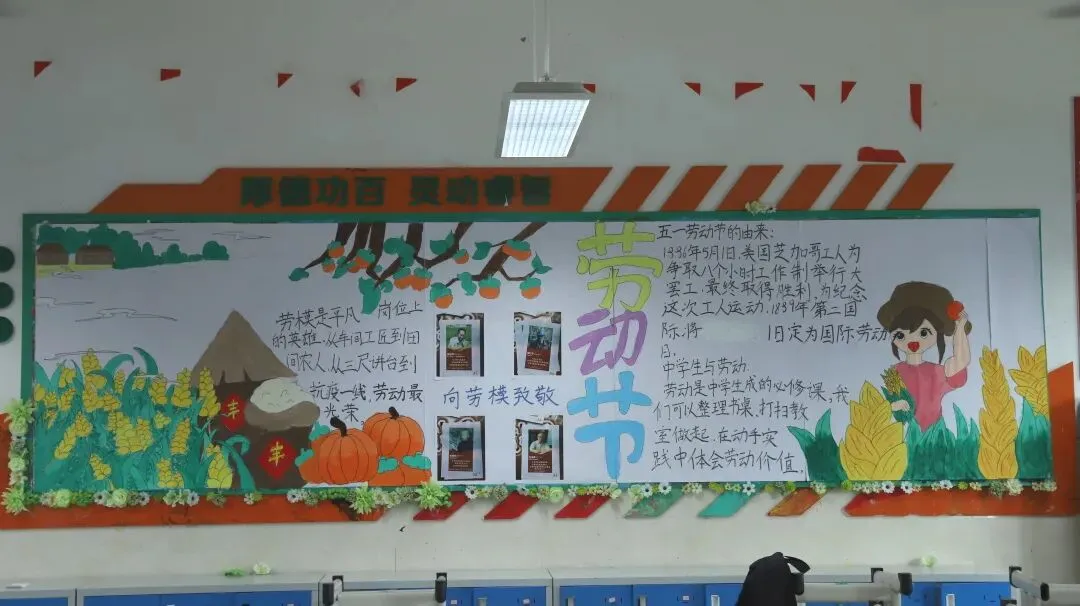 劳模是平凡 岗位上
的英雄,从车间工匠到田
间农人,从三尺讲台到
抗疫一线,劳动最
光荣
丰
丰
向劳模致敬
劳
动
节
五一劳动节的由来:
1886年5月1日,美国芝加哥工人为
争取八个小时工作制举行大
罢工,最终取得胜利,为纪念
这次工人运动,1889年第二国
际,将 1日定为国际劳动
日.
中学生与劳动.
劳动是中学生成的必修课,我
们可以整理书桌,打扫教
室做起,在动手实
践中体会劳动价值。